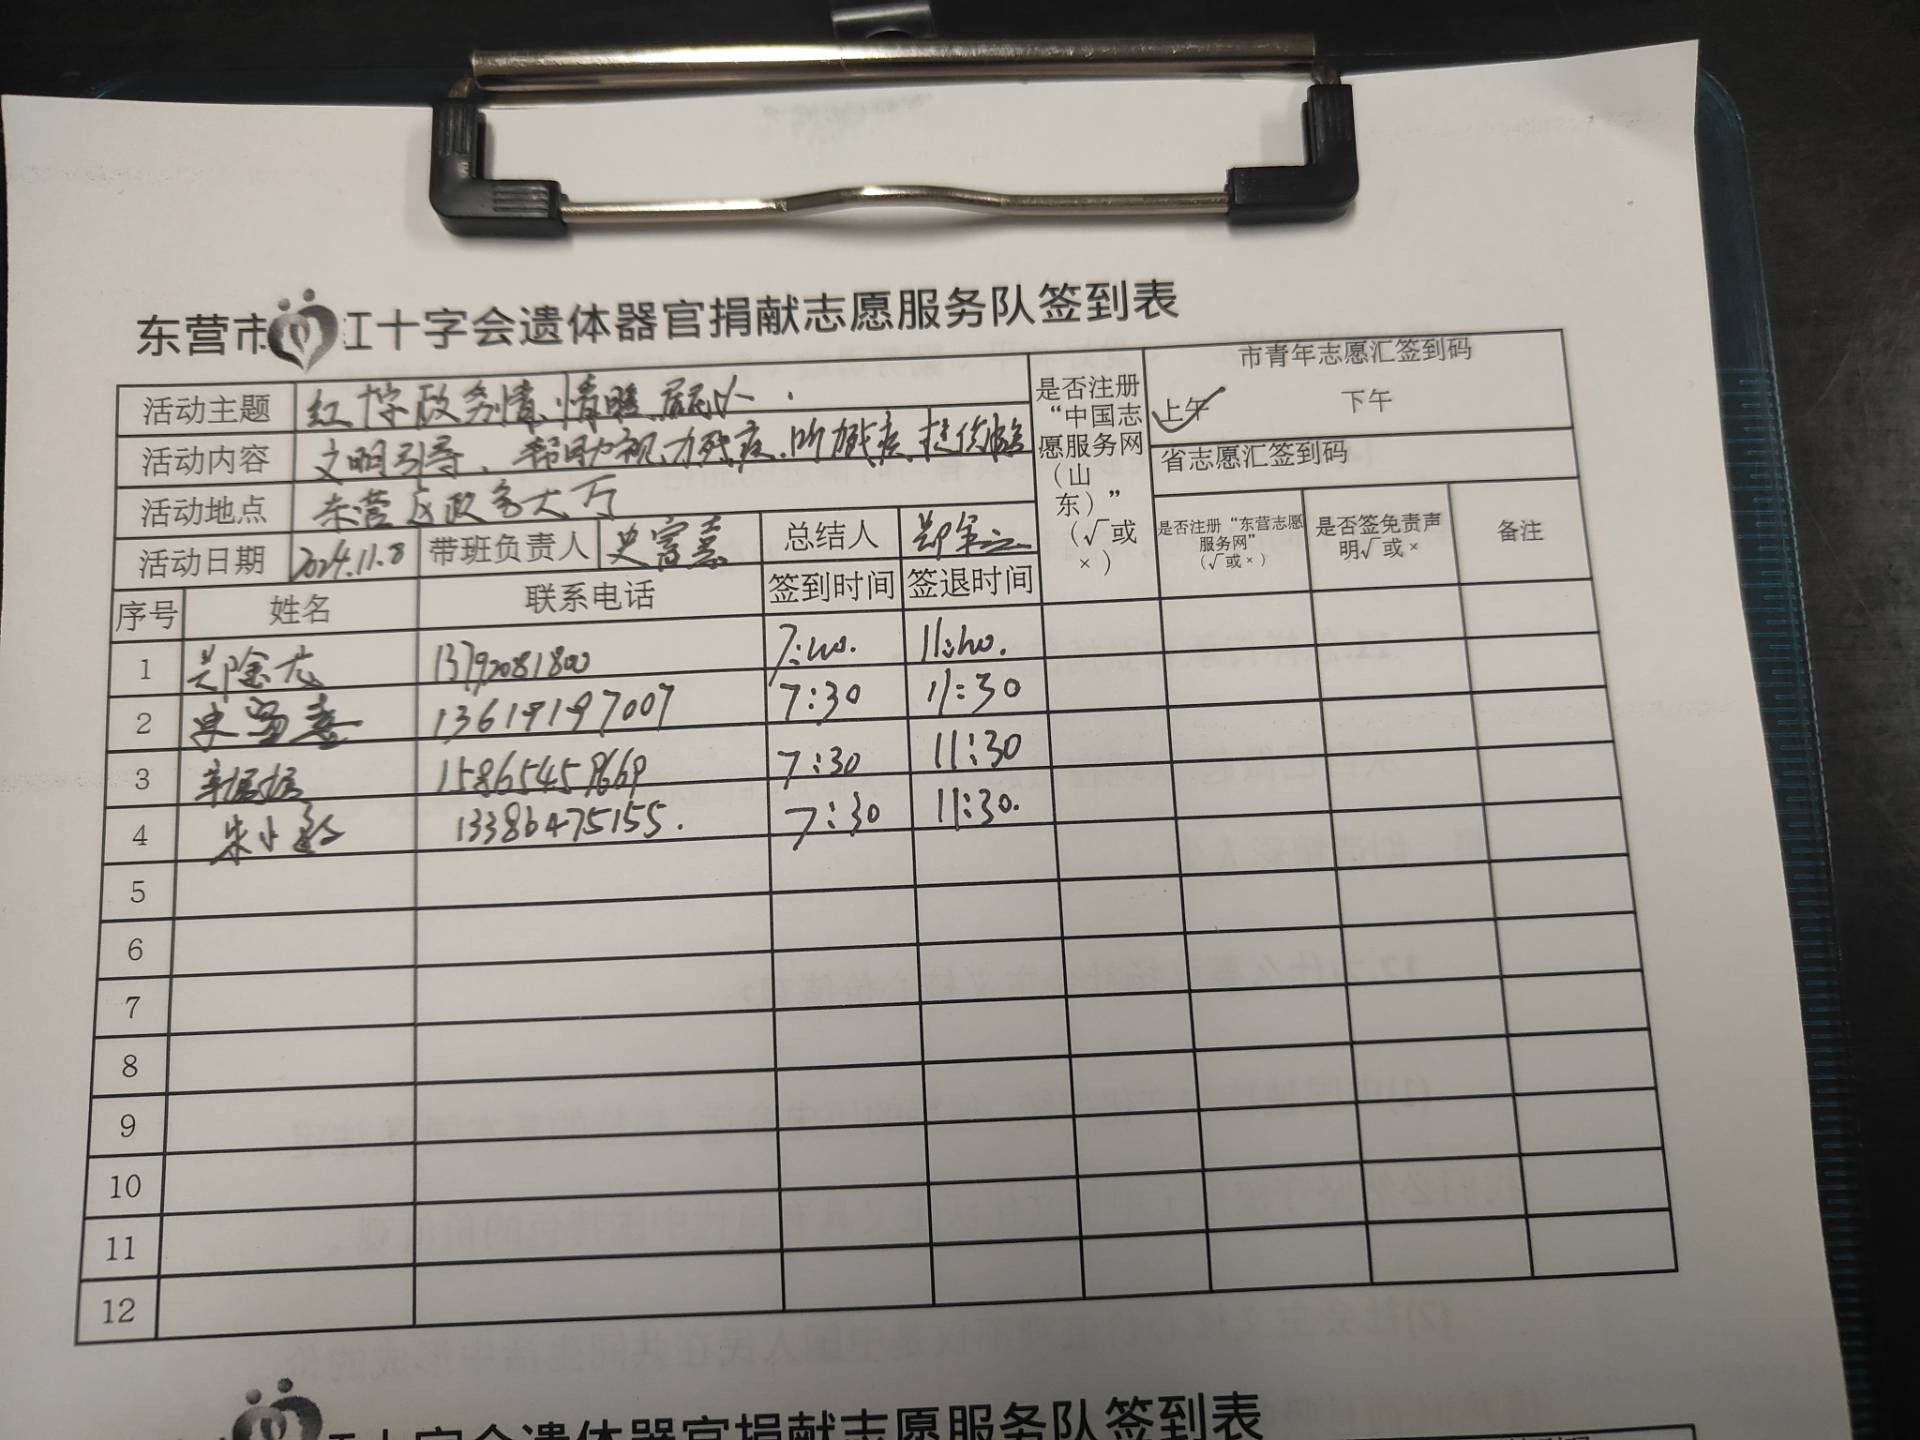 东营市红十字会遗体器官捐献志愿服务队签到表
活动主题 红十字政务情、情暖
是否注册“中国志愿服务网（山东）”（√或×）
市青年志愿汇签到码
上午 ✓ 下午
活动内容 文明引导、帮助视力残疾、听力残疾、提供
省志愿汇签到码
活动地点 东营区政务大厅
活动日期 2024.11.8 带班负责人 史富熹 总结人
是否注册“东营志愿服务网”（√或×） 是否签免责声明√或× 备注
序号 姓名 联系电话 签到时间 签退时间
1 13792081800 7:40. 11:40.
2 史富熹 13619197007 7:30 11:30
3 15865459669 7:30 11:30
4 朱小 13386475155. 7:30 11:30.
5
6
7
8
9
10
11
12
红十字会遗体器官捐献志愿服务队签到表